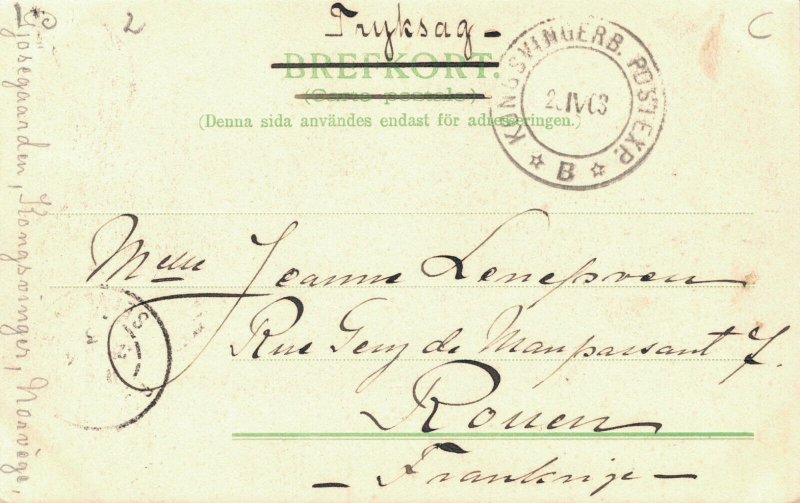 Tryksag -
BREFKORT.
(Carte postale)
(Denna sida användes endast för adresseringen.)
KONGSVINGERB. POSTEXP. B
2.IV 03
2
C
Melle Jeanne Lenepveu
Rue Guy de Maupassant 7.
Rouen
- Frankrige -
Gjøsegaarden, Kongsvinger, Norvège,